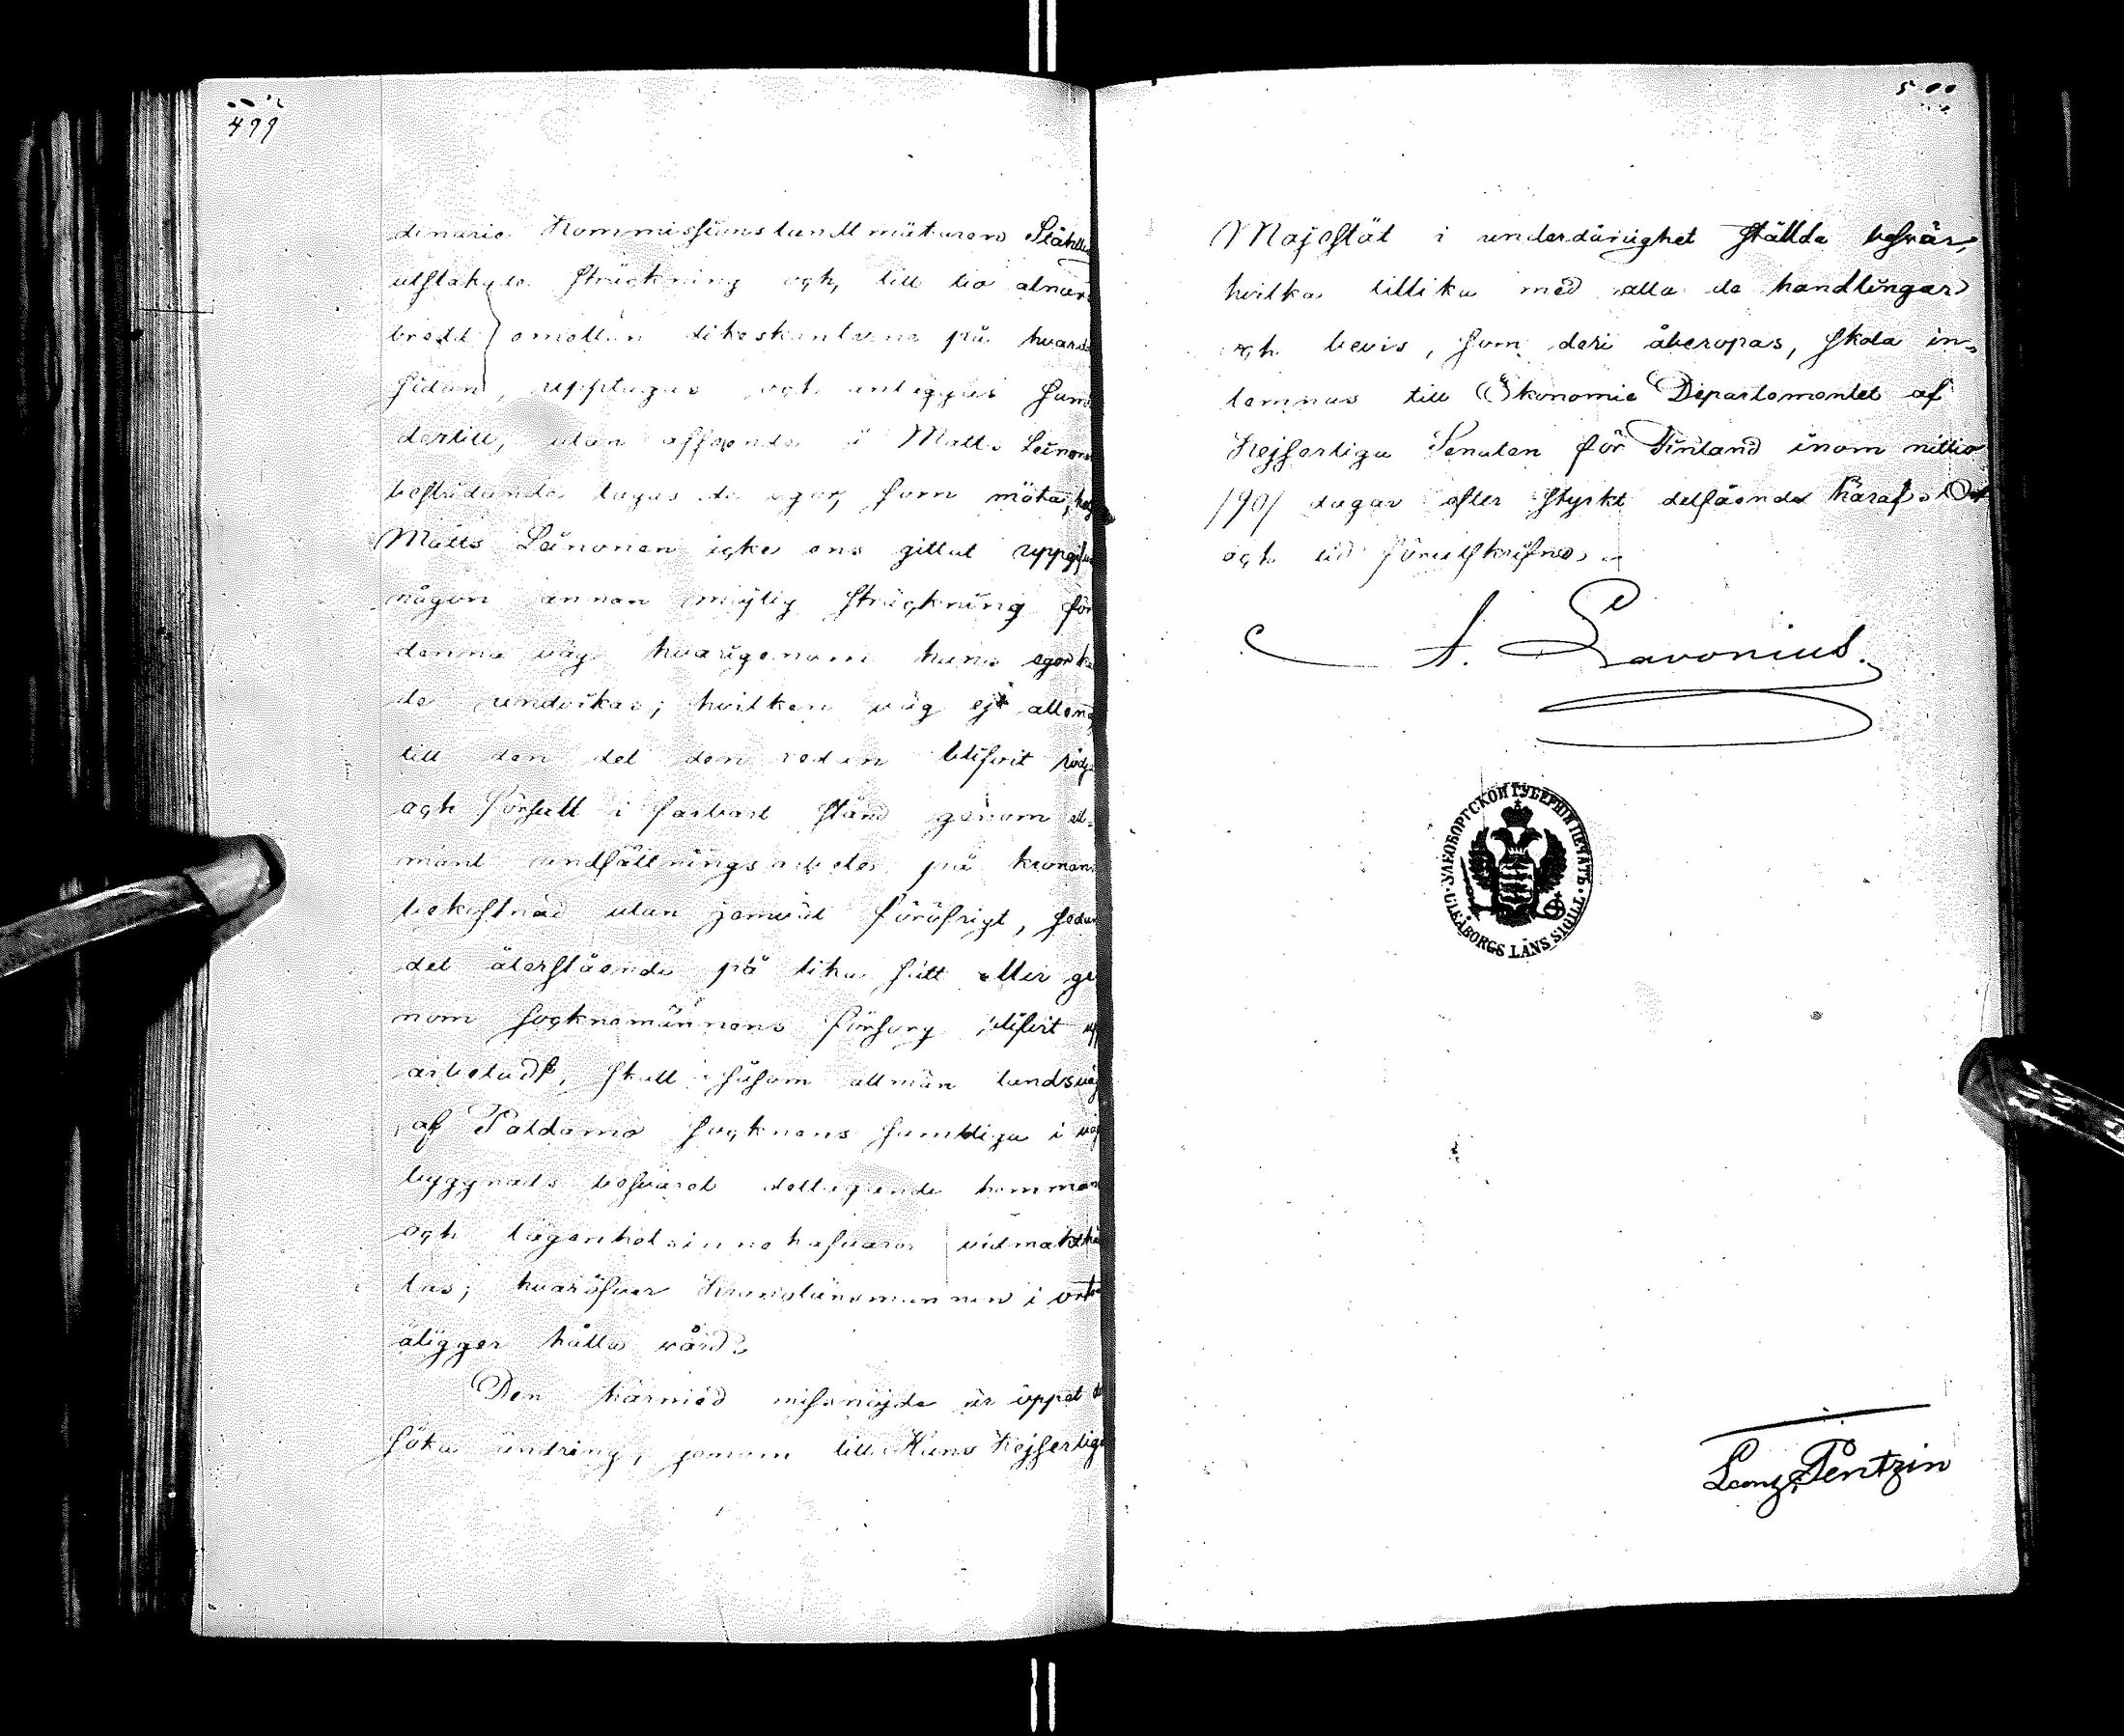 499
dinarie Kommissionslandtmätaren Ståhles
utstakade sträckning och, till tio alnars
bredd emellan dikeskanterna på hvardera
sidan, upptagas och anläggas samt
dertill, utan afseende å Matts Leinonens
bestridande tagas de egor, som möta, helst
Matts Leinonen icke ens gittat uppgifva
någon annan möjlig sträckning för
denna väg hvarigenom hans egor kun
de undvikas; hvilken väg ej allenast
till den del den redan blifvit röjd
och försatt i farbart stånd genom all-
mänt undsättningsarbete på kronans
bekostnad utan jemväl föröfrigt, sedan
det återstående på lika sätt eller ge
nom socknemännens försorg blifvit upp
arbetadt, skall såsom allmän landsväg
af Paldamo socknens samtliga i väg
byggnads besväret deltagande hemman
och lägenhetsinnehafvare vidmakthål
las; hvaröfver Kronolänsmannen i orten
åligger hålla vård.
Den härmed missnöjde är öppet att
söka ändring, genom till Hans Kejserliga
500
Majestät i underdånighet ställda besvär,
hvilka tillika med alla de handlingar
och bevis, som deri åberopas, skola in-
lemnas till Ekonomie Departementet af
Kejserliga Senaten för Finland inom nittio
/90/ dagar efter styrkt delfående häraf. Ort
och tid förutskrifne.
S. Lavonius.
УЛЕАБОРГСКОЙ ГУБЕРНІИ ПЕЧАТЬ
ULEÅBORGS LÄNS SIGILL
Pentzin